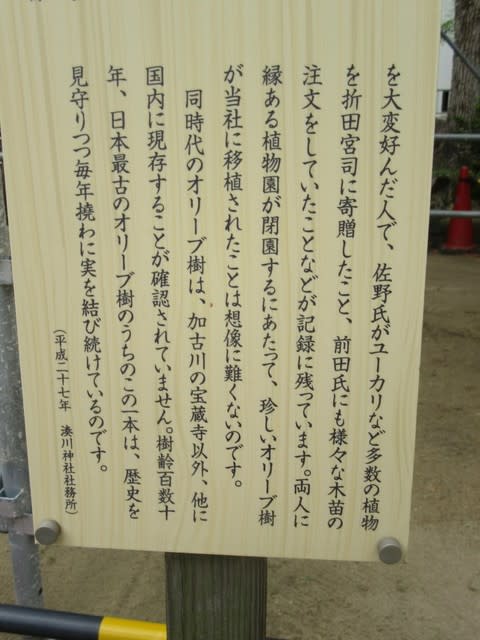 を大変好んだ人で、佐野氏がユーカリなど多数の植物
を折田宮司に寄贈したこと、前田氏にも様々な木苗の
注文をしていたことなどが記録に残っています。両人に
縁ある植物園が閉園するにあたって、珍しいオリーブ樹
が当社に移植されたことは想像に難くないのです。
同時代のオリーブ樹は、加古川の宝蔵寺以外、他に
国内に現存することが確認されていません。樹齢百数十
年、日本最古のオリーブ樹のうちのこの一本は、歴史を
見守りつつ毎年撓わに実を結び続けているのです。
（平成二十七年　湊川神社社務所）